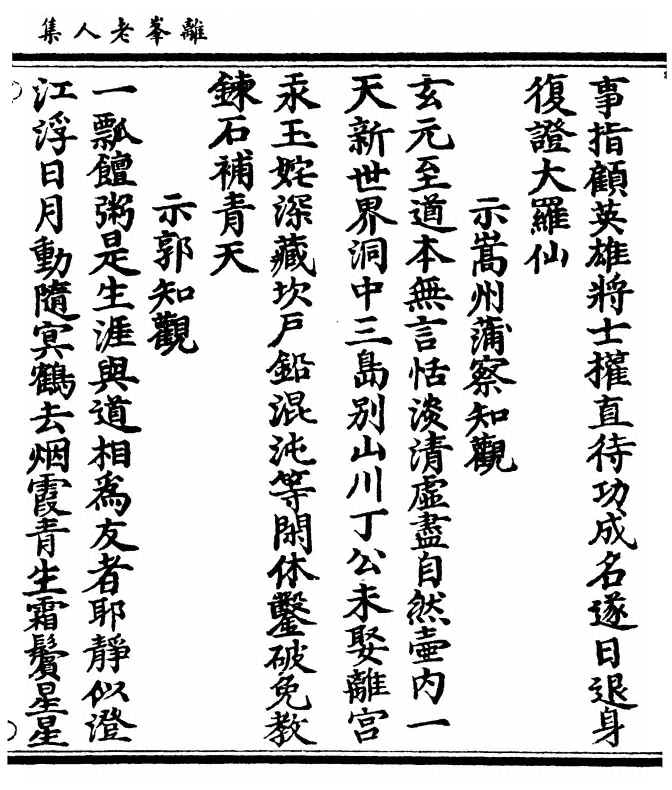 離峯老人集
事指顧英雄將士攉直待功成名遂日退身
復證大羅仙
示嵩州蒲察知觀
玄元至道本無言恬淡清虛盡自然壷内一
天新世界洞中三島别山川丁公未娶離宮
汞玉姹深藏坎戸鉛混沌等閑休鑿破免教
鍊石補青天
示郭知觀
一瓢饘粥是生涯與道相爲友者耶靜似澄
江浮日月動隨寞鶴去烟霞青生霜鬢星星